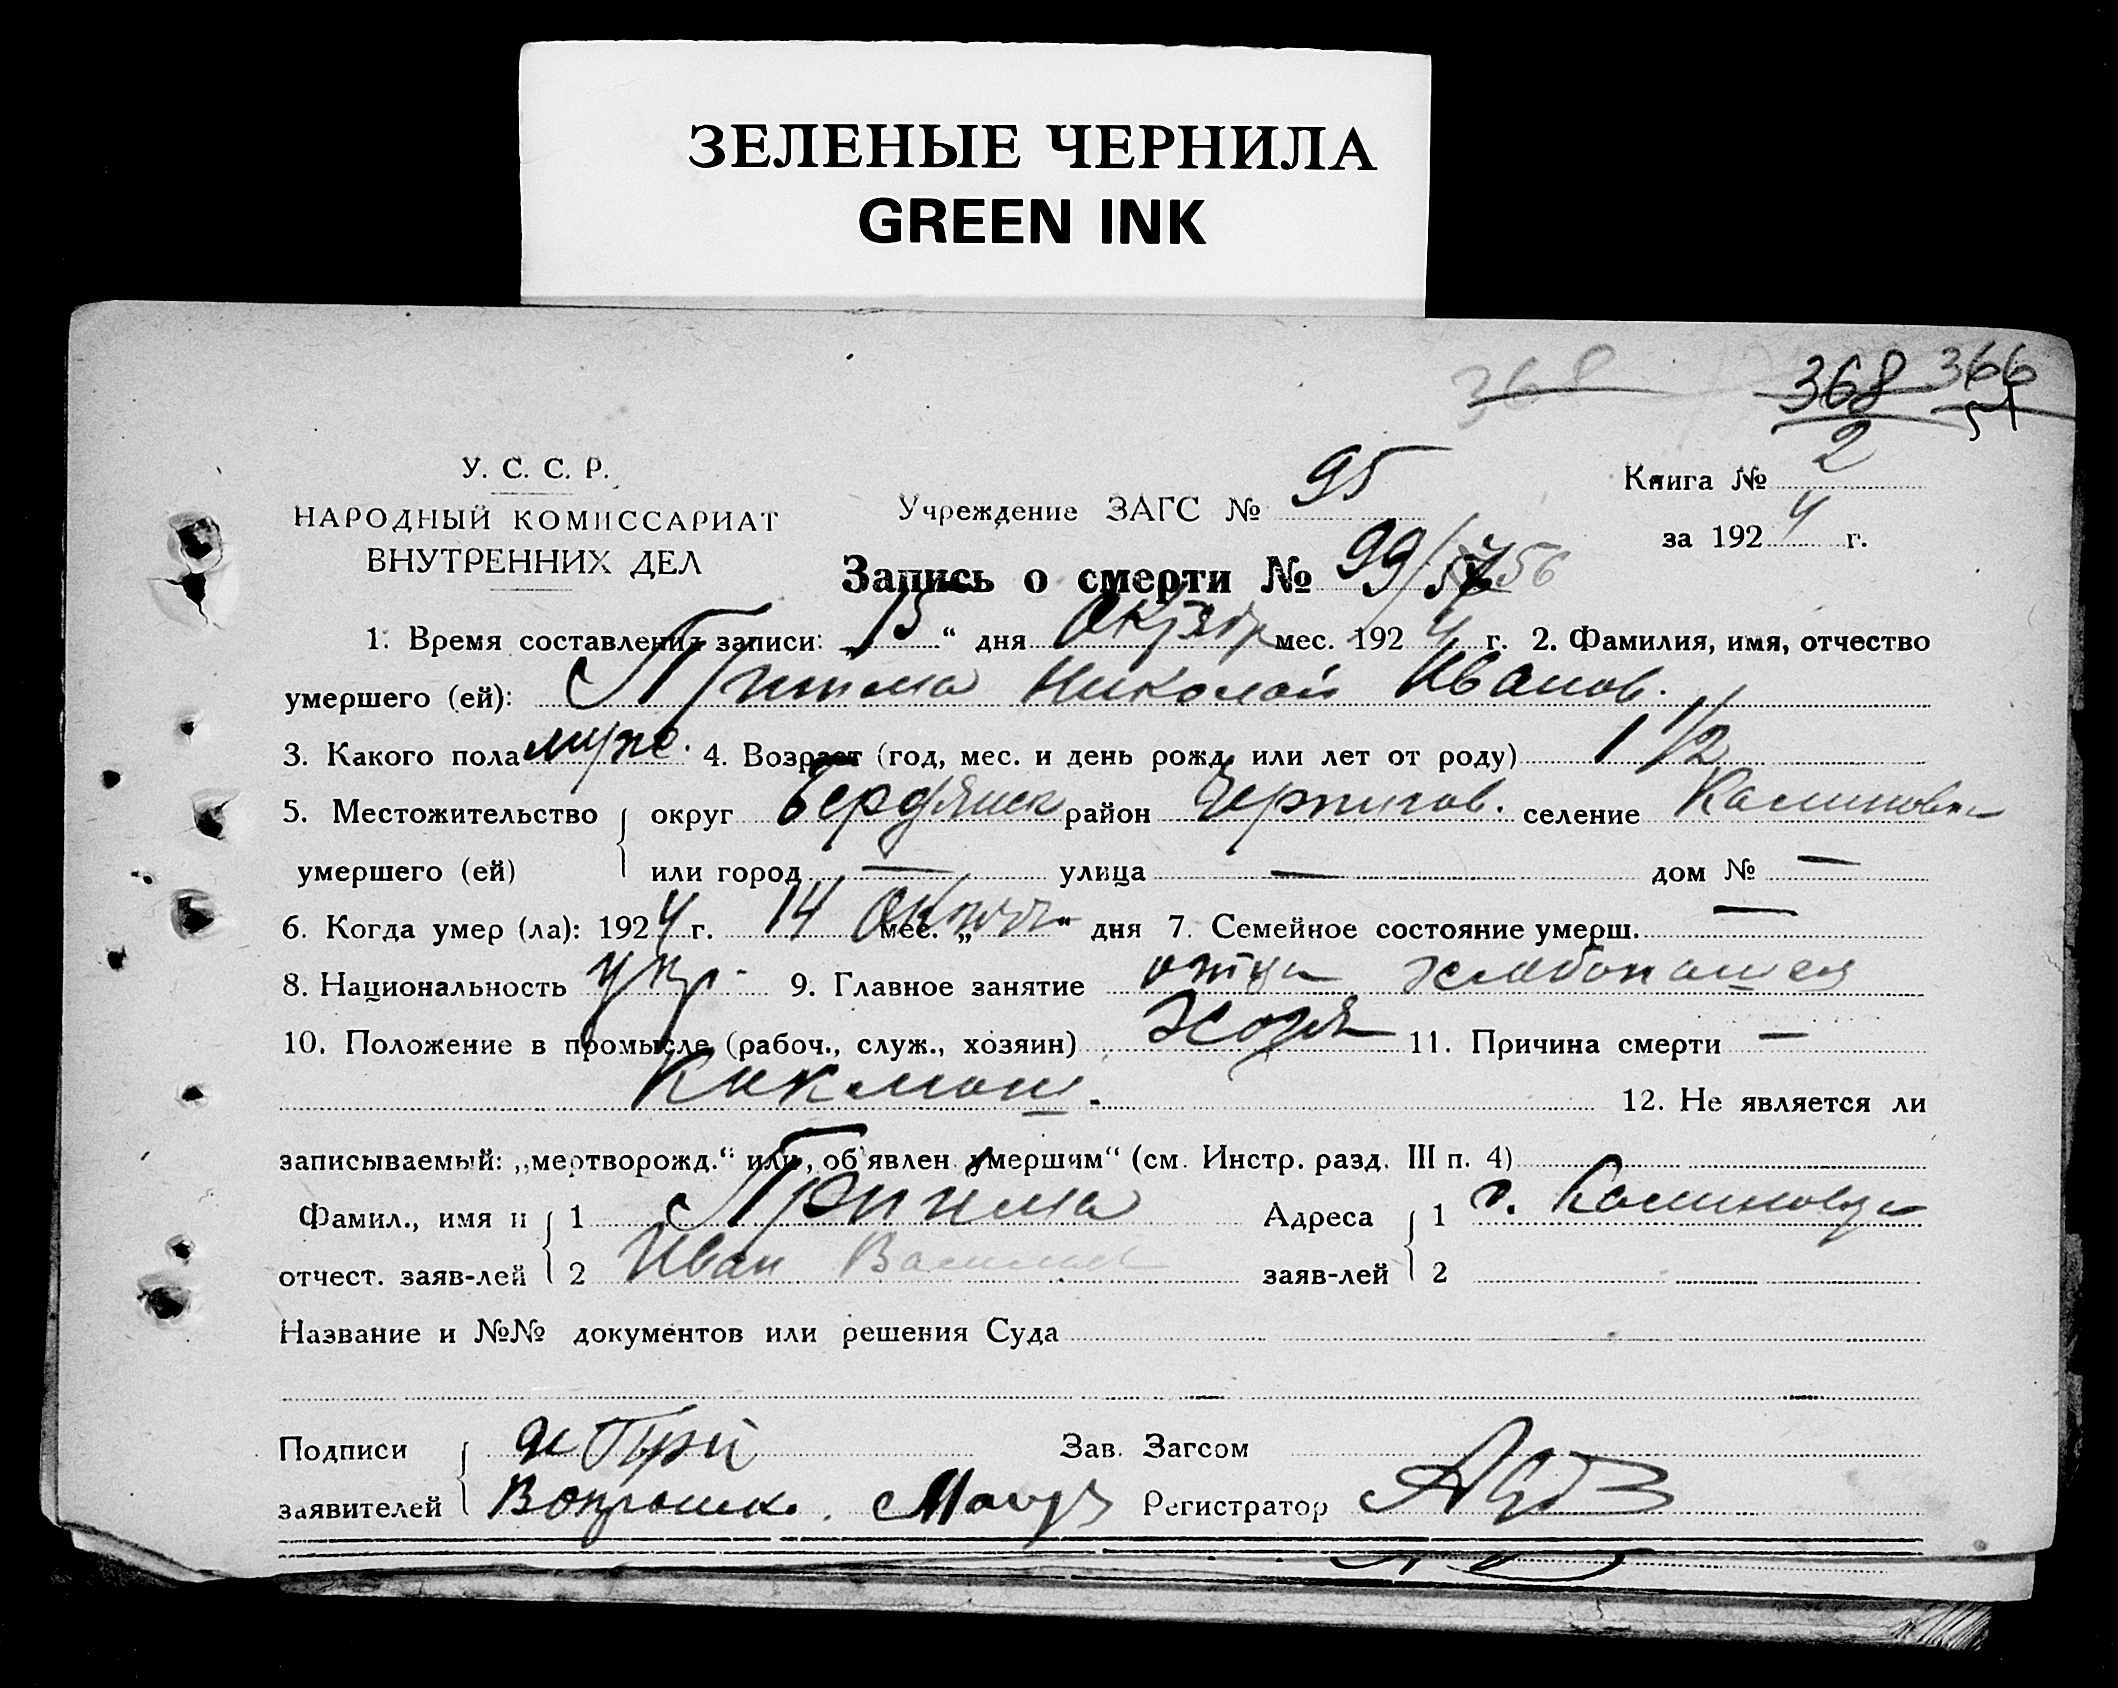 ЗЕЛЕНЫЕ ЧЕРНИЛА
GREEN INK
368 368 366
У. С. С. Р.
НАРОДНЫЙ КОМИССАРИАТ
ВНУТРЕННИХ ДЕЛ
Учреждение ЗАГС № 95
Книга № 2
за 1924 г.
Запись о смерти № 99/ 56
1. Время составления записи: „15“ дня мес. 1924 г. 2. Фамилия, имя, отчество
умершего (ей): Приима Николай Иванов.
3. Какого пола муже. 4. Возраст (год, мес. и день рожд. или лет от роду) 1 1/2
5. Местожительство округ Бердянск район Чернигов. селение Калиновка
умершего (ей) или город — улица — дом № —
6. Когда умер (ла): 1924 г. 14 мес. „ “ дня 7. Семейное состояние умерш. —
8. Национальность укр. 9. Главное занятие отца хлебопашец
10. Положение в промысле (рабоч., служ., хозяин) 11. Причина смерти —
12. Не является ли
записываемый: „мертворожд.“ или „об'явлен умершим“ (см. Инстр. разд. III п. 4)
Фамил., имя и 1 Приима Адреса 1 с. Калиновка
отчест. заяв-лей 2 Иван заяв-лей 2
Название и №№ документов или решения Суда
Подписи Зав. Загсом
заявителей Регистратор